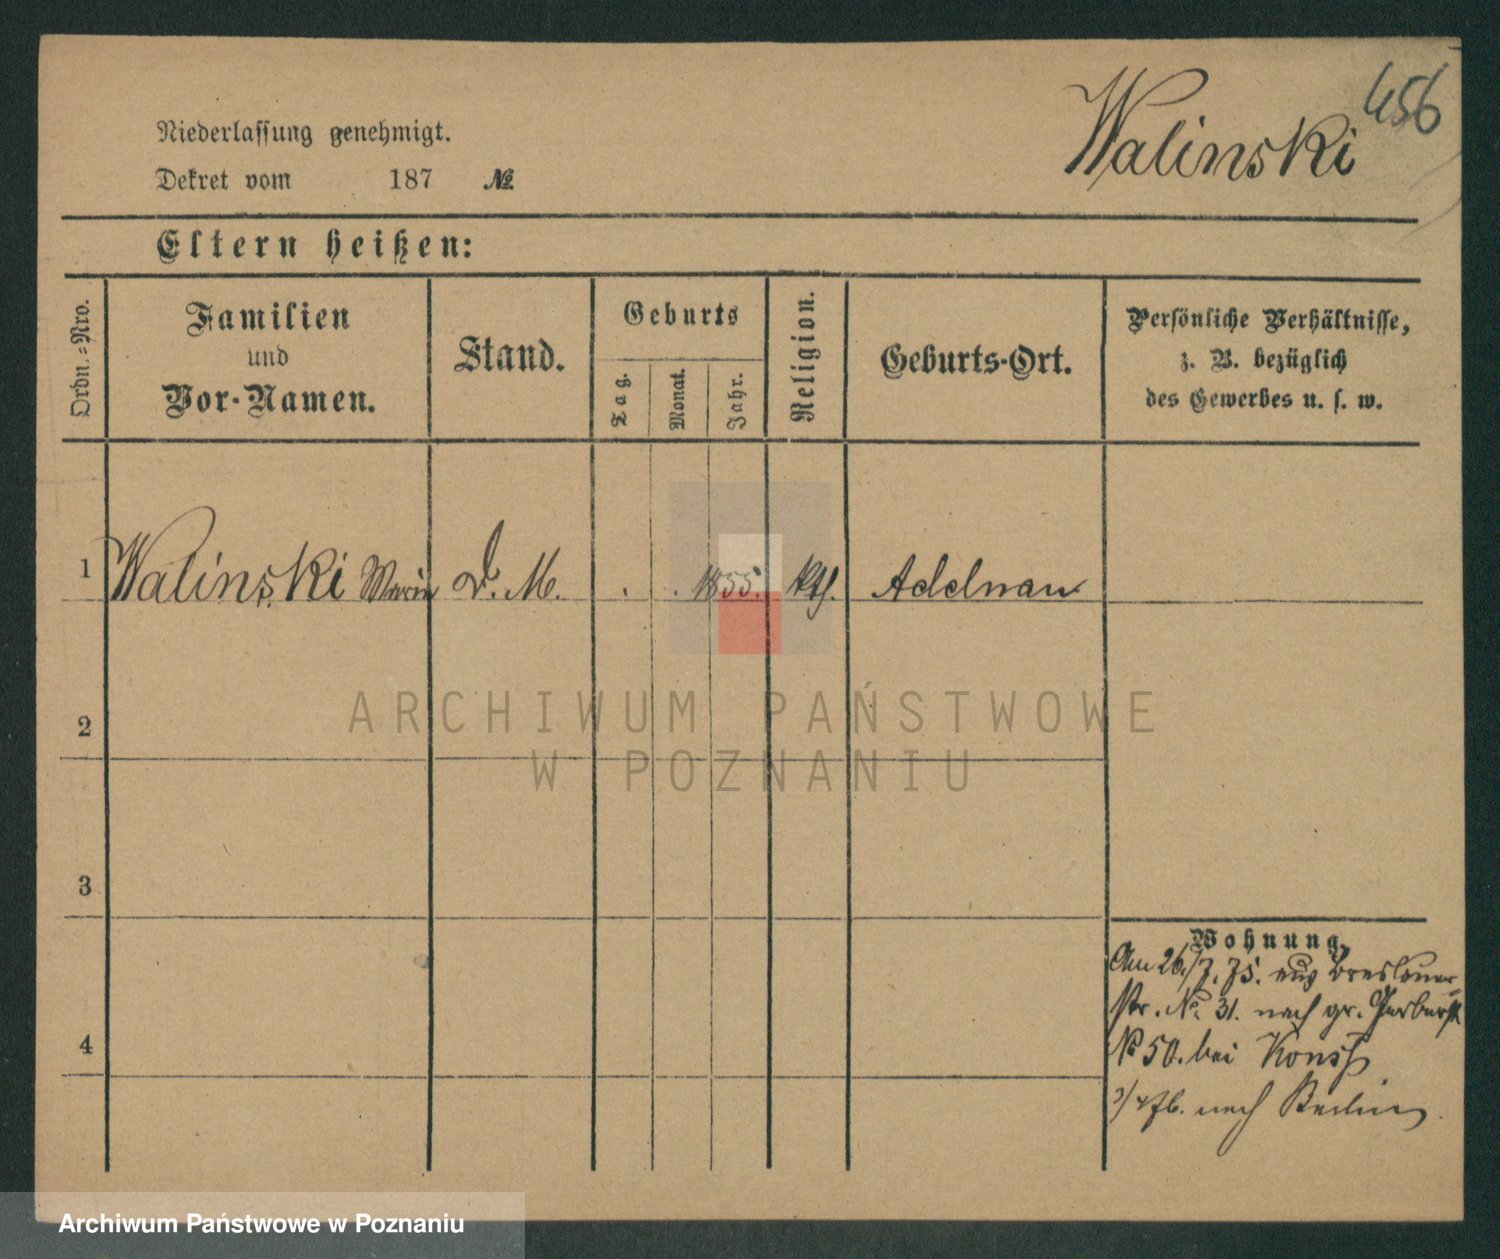 456
Walinski
Niederlassung genehmigt.
Dekret vom 187 №
Eltern heißen:
Ordn.=Nro.
Familien
und
Vor-Namen.
Stand.
Geburts
Tag.
Monat.
Jahr.
Religion.
Geburts-Ort.
Persönliche Verhältnisse,
z. B. bezüglich
des Gewerbes u. s. w.
1 Walinski Marie D. M. . . 1855. kth. Adelnau
2
3
4
Wohnung.
Am 26./7. 75. aus Breslauer-
str. No. 31. nach gr. Gerberstr
№ 50. bei
nach Berlin.
ARCHIWUM PAŃSTWOWE
W POZNANIU
Archiwum Państwowe w Poznaniu